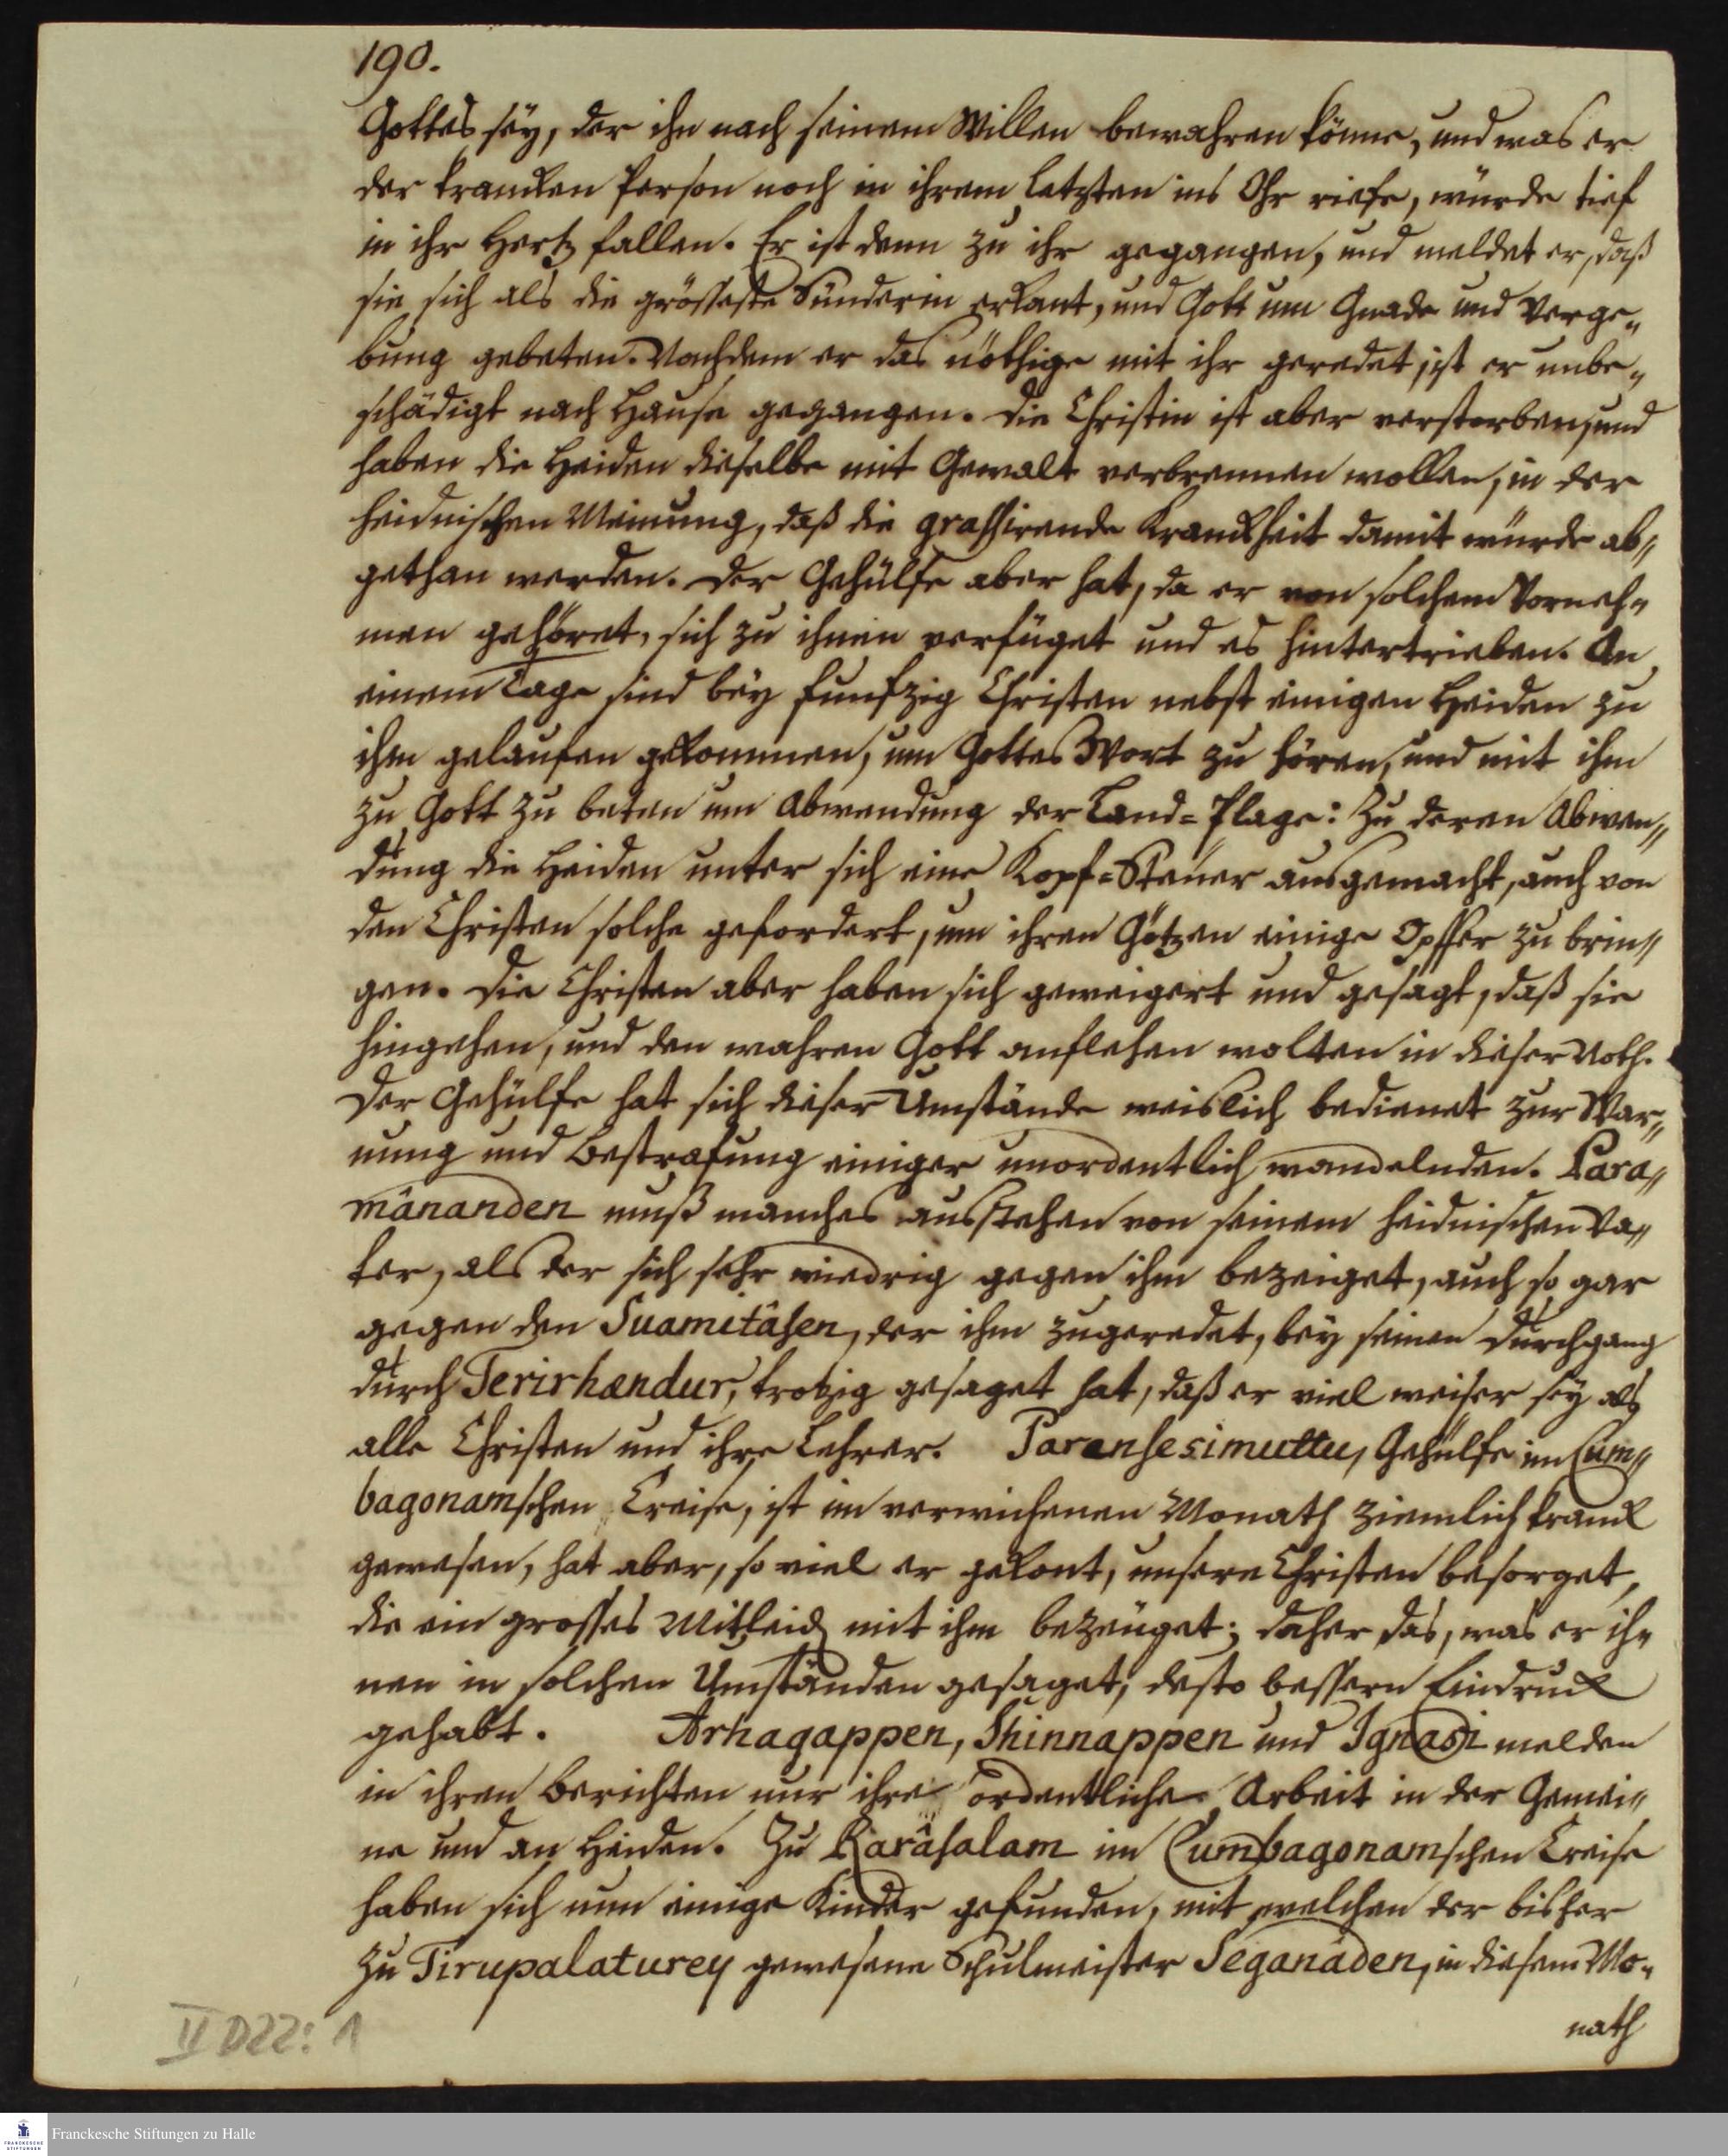 190.
Gottes sey, der ihn nach seinem Willen bewahren könne, und was er
der krancken Person noch in ihrem Letzten ins Ohr riefe, würde tief
in ihr Hertz fallen. Er ist denn zu ihr gegangen, und meldet er, daß
sie sich als die grösseste Sünderin erkant, und Gott um Gnade und Verge„
bung gebeten. Nachdem er das nöthige mit ihr geredet, ist er unbe„
schädigt nach Hause gegangen. Die Christin ist aber verstorben, und
haben die Heiden dieselbe mit Gewalt verbrennen wollen, in der
heidnischen Meinung, daß die grassirende Kranckheit damit würde ab„
gethan werden. Der Gehülfe aber hat, da er von solchem Vorneh„
men gehöret, sich zu ihnen verfüget und es hintertrieben. An
einem Tage sind bey funfzig Christen nebst einigen Heiden zu
ihm gelaufen gekommen, um Gottes Wort zu hören, und mit ihm
zu Gott zu beten um Abwendung der Land=Plage: Zu deren Abwen„
dung die Heiden unter sich eine Kopf=Steuer ausgemacht, auch von
den Christen solche gefordert, um ihren Götzen einige Opffer zu brin„
gen. Die Christen aber haben sich geweigert und gesagt, daß sie
hingehen, und den wahren Gott anflehen wolten in dieser Noth.
Der Gehülfe hat sich dieser Umstände weislich bedienet zur War„
nung und Bestrafung einiger unordentlich wandelnden. Para„
mânanden muß manches ausstehen von seinem heidnischen Va„
ter, als der sich sehr wiedrig gegen ihm bezeiget, auch so gar
gegen den Suamitâsen, der ihm zugeredet, bey seinen Durchgang
durch Terirhandur, trotzig gesaget hat, daß er viel weiser sey als
alle Christen und ihre Lehrer. Paransesimuttu, Gehülfe im Cum„
bagonamschen Creise, ist im verwichenen Monath ziemlich kranck
gewesen, hat aber, so viel er gekont, unsere Christen besorget,
die ein grosses Mitleid mit ihm bezeuget; daher das, was er ih„
nen in solchen Umständen gesaget, desto bessern Eindruck
gehabt. Arhagappen, Shinnappen und Ignasi melden
in ihren Berichten nur ihre ordentliche Arbeit in der Gemei„
ne und an Heiden. Zu Rarâsalam im Cumbagonamschen Creise
haben sich nun einige Kinder gefunden, mit welchen der bisher
zu Tirupalaturey gewesene Schulmeister Seganâden, in diesem Mo„
nath
II D22: 1
Franckesche Stiftungen zu Halle
FRANCKESCHE
STIFTUNGEN